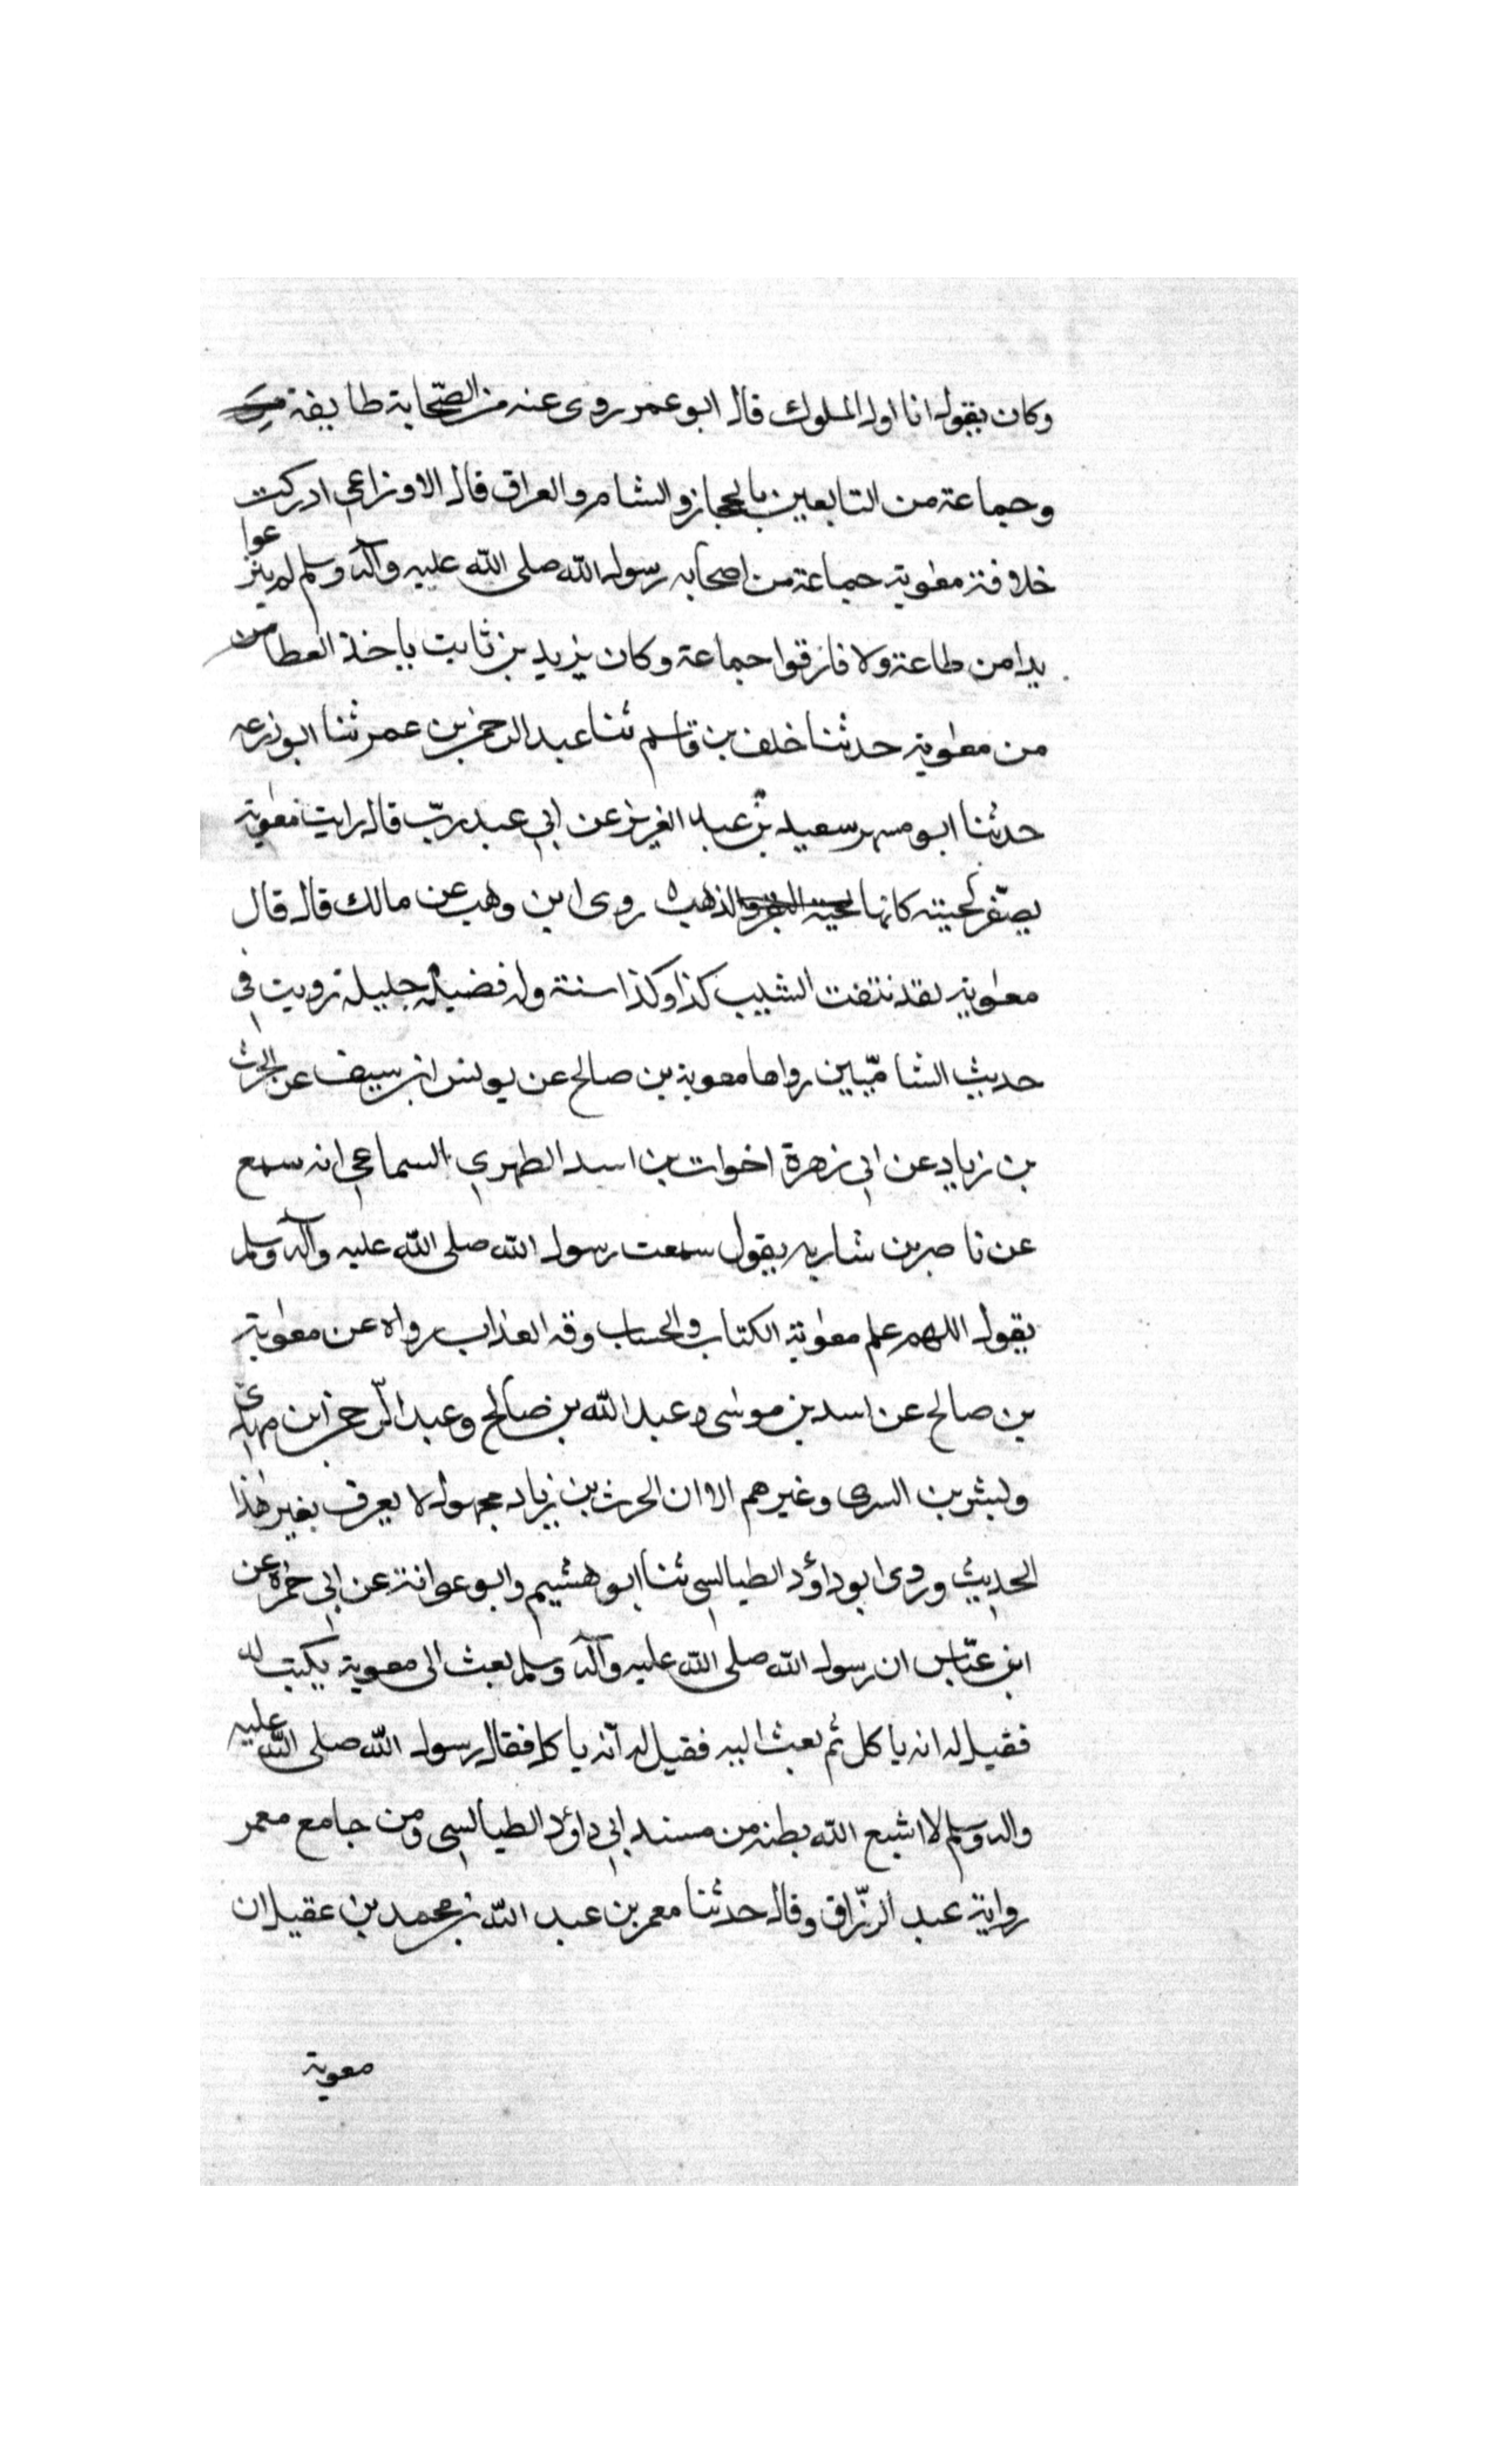 وكان يقول انا اول الملوك قال ابو عمر روى عنه من الصحابة طايفة
وجماعة من التابعين بالحجاز والشام والعراق قال الاوزاعي ادركت
خلافة معوية جماعة من اصحاب رسول الله صلى الله عليه وآله وسلم لم ينزعوا
يدا من طاعة ولا فارقوا جماعة وكان يزيد بن ثابت ياخذ العطا من
من معوية حدثنا خلف بن قاسم ثنا عبد الرحمن بن عمر ثنا ابو زرعه
حدثنا ابو مسهر سعيد بن عبد العزيز عن ابي عبد رب قال رايت معوية
يصفر لحيته كانها الذهب روى ابن وهب عن مالك قال قال
معوية لقد نتفت الشيب كذا وكذا سنة وله فضيلة جليلة رويت في
حديث الشاميين رواها معوية بن صالح عن يونس ابن سيف عن الحرث
بن زياد عن ابي زهرة اخوات بن اسد الظهري السماعي انه سمع
عن ناصر بن شاريه يقول سمعت رسول الله صلى الله عليه وآله وسلم
يقول اللهم علم معوية الكتاب والحساب وقه العذاب رواه عن معوية
بن صالح عن اسد بن موسى وعبد الله بن صالح وعبد الرحمن ابن مهدي
وبشر بن السرى وغيرهم الا ان الحرث بن زياد مجهول لا يعرف بغير هذا
الحديث وروى ابو داؤد الطيالسي ثنا ابو هشيم وابو عوانة عن ابي حمزة عن
ابن عباس ان رسول الله صلى الله عليه وآله وسلم بعث الى معوية يكتب له
فقيل له انه ياكل ثم بعث اليه فقيل له انه ياكل فقال رسول الله صلى الله عليه
واله وسلم لا اشبع الله بطنه من مسند ابي داؤد الطيالسي ومن جامع معمر
رواية عبد الرزاق وقال حدثنا معمر بن عبد الله بن محمد بن عقيل ان
معوية